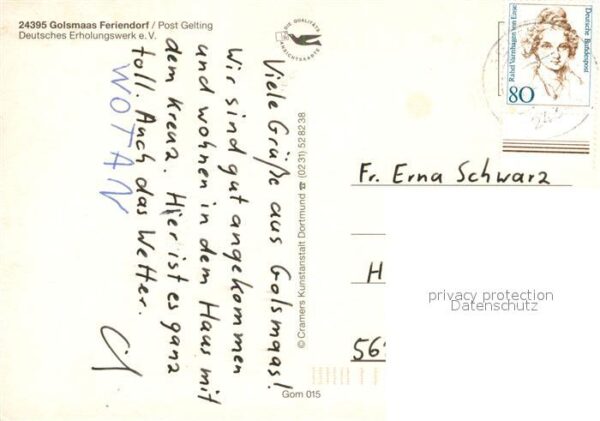 24395 Golsmaas Feriendorf / Post Gelting
Deutsches Erholungswerk e. V.
DIE QUALITÄTS
ANSICHTSKARTE
Viele Grüße aus Golsmaas!
Wir sind gut angekommen
und wohnen in dem Haus mit
dem Kreuz. Hier ist es ganz
toll. Auch das Wetter.
WOTAN
© Cramers Kunstanstalt Dortmund ☎ (0231) 528238
Gom 015
Rahel Varnhagen von Ense
Deutsche Bundespost
80
Fr. Erna Schwarz
H
56
privacy protection
Datenschutz